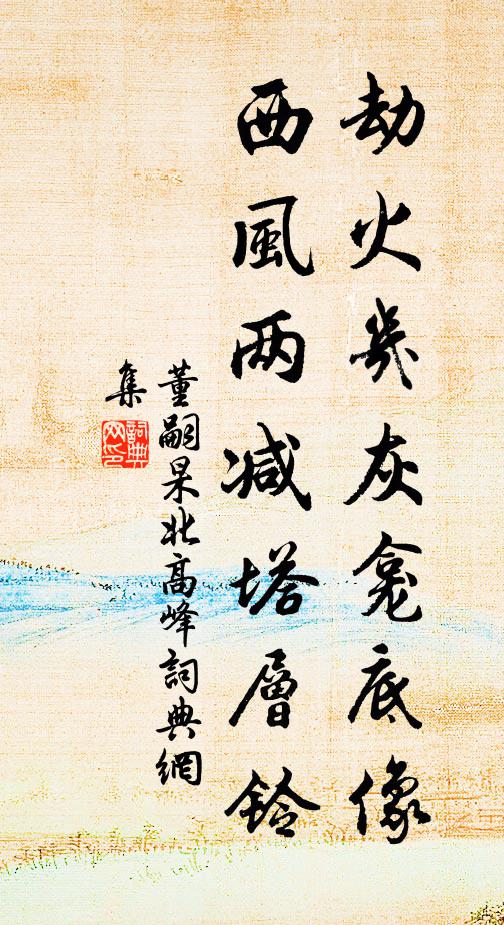 劫火幾灰龛底像
西風两减塔層铃
董嗣杲北高峰詞典網
集
詞典网印